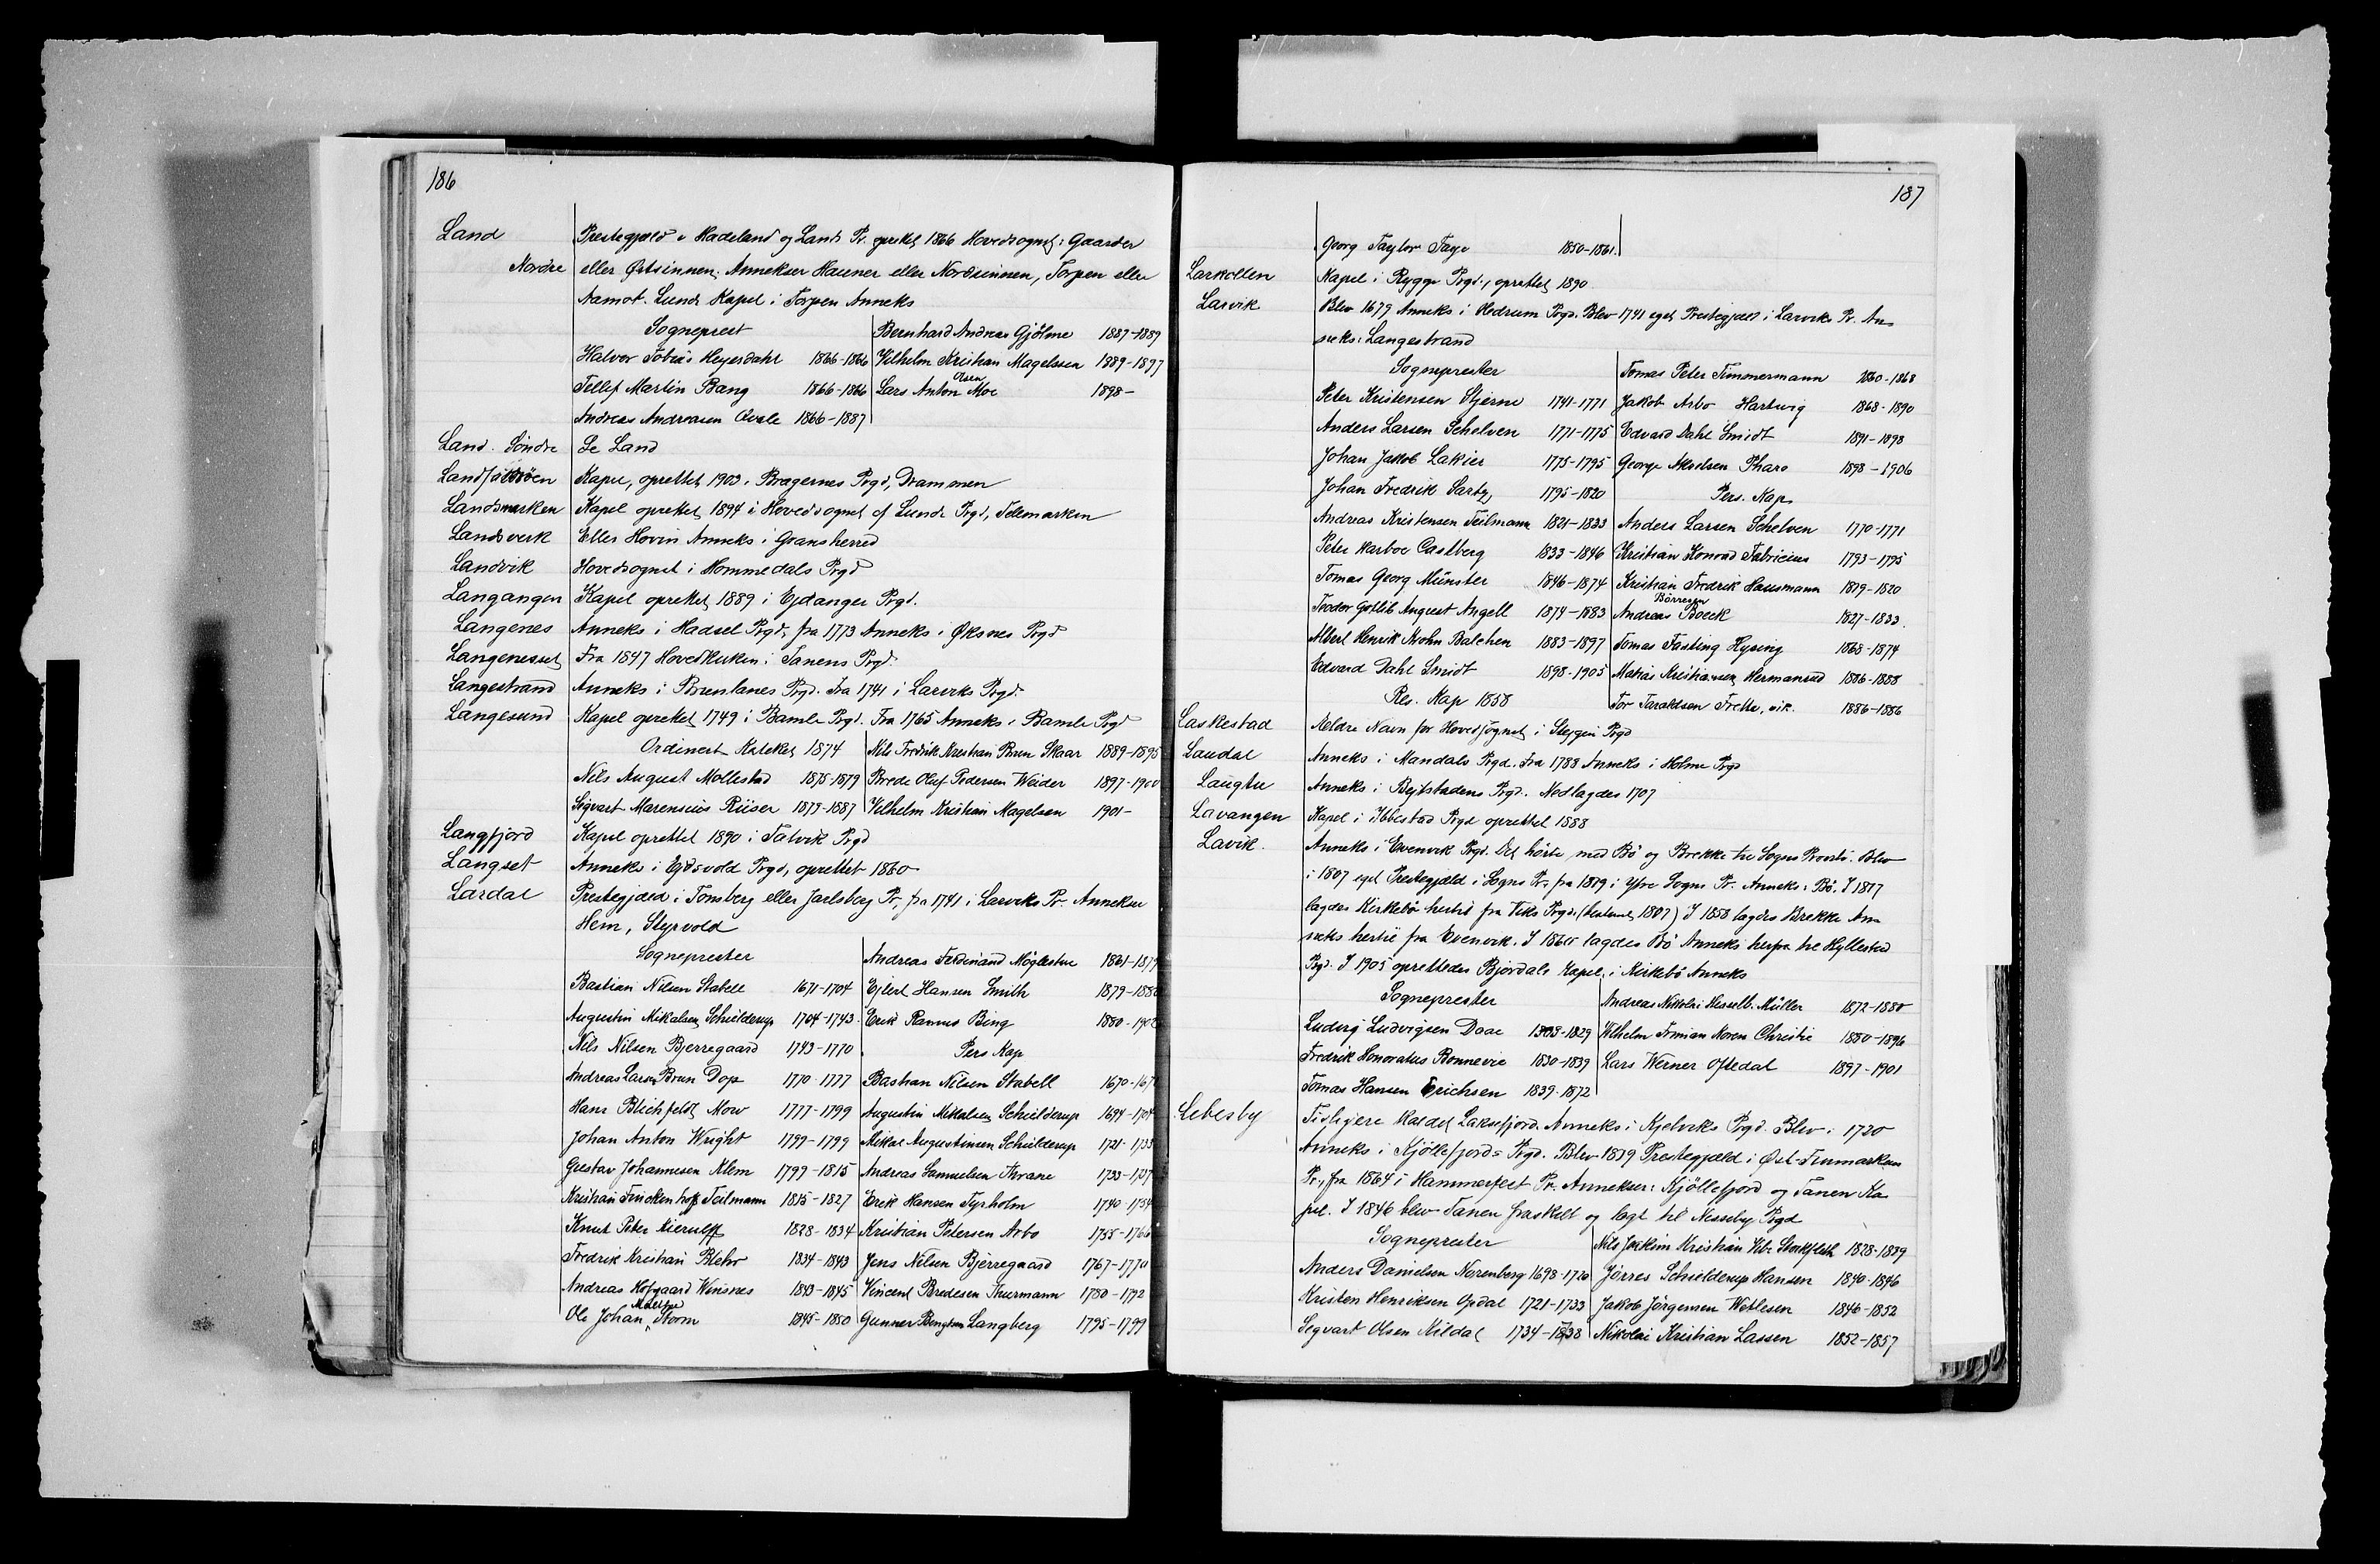 186
Land Prestegjæld i Hadeland og Lands Pr. oprettet 1866 Hovedsognet: Gaarder
Nordre eller Østsinnen. Annekser Hauner eller Nordsinnen, Torpen eller
Aamot. Lunde Kapel i Torpen Anneks
Sogneprest Bernhard Andreas Gjølme 1887-1889
Halvor Tobias Heyerdahl 1866-1866 Vilhelm Kristian Magelssen 1889-1897
Tellef Martin Bang 1866-1866 Lars Anton Olsen Moe 1898-
Andreas Andreasen Qvale 1866-1887
Land. Söndre Se Land
Landfaldöen Kapel, oprettet 1903 i Bragernes Prgd, Drammen
Landsmarken Kapel oprettet 1894 i Hovedsognet af Lunde Prgd, Telemarken
Landsverk Eller Hovin Anneks i Gransherred
Landvik Hovedsognet i Hommedals Prgd
Langangen Kapel oprettet 1889 i Ejdanger Prgd.
Langenes Anneks i Hadsel Prgd, fra 1773 Anneks i Øksnes Prgd
Langenesset Fra 1847 Hovedkirken i Tanens Prgd.
Langestrand Anneks i Brunlanes Prgd. Fra 1741 i Larviks Prgd.
Langesund Kapel oprettet 1749 i Bamle Prgd. Fra 1765 Anneks i Bamle Prgd
Ordineret Kateket 1874 Nils Fredrik Kristian Brun Skaar 1889-1895
Nils August Mollestad 1875-1879 Brede Oluf Pedersen Weider 1897-1900
Sigvart Marensius Riiser 1879-1887 Vilhelm Kristian Magelsen 1901-
Langfjord Kapel oprettet 1890 i Talvik Prgd
Langset Anneks i Ejdsvold Prgd, oprettet 1860
Lardal Prestegjæld i Tonsberg eller Jarlsberg Pr, fra 1741 i Larviks Pr. Annekser
Hem, Styrvold
Sogneprester Andreas Ferdinand Møglestue 1861-1879
Bastian Nilsen Stabell 1671-1704 Ejlert Hansen Smith 1879-1880
Augustin Mikalsen Schielderup 1704-1743 Erik Rasmus Bing 1880-190
Nils Nilsen Bjerregaard 1743-1770 Pers Kap
Andreas Larsen Brun Dop 1770-1777 Bastian Nilsen Stabell 1670-167
Hans Blichfeldt Mow 1777-1799 Augustin Mikkalsen Schielderup 1694-1704
Johan Anton Wright 1799-1799 Mikal Augustinsen Schielderup 1721-1733
Gustav Johannesen Klem 1799-1815 Andreas Samuelsen Thrane 1733-1737
Kristian Frucken hoff Teilmann 1815-1827 Erik Hansen Tyrholm 1740-1754
Knut Peter Kierulff 1828-1834 Kristian Petersen Arbo 1755-1766
Fredrik Kristian Blehr 1834-1843 Jens Nilsen Bjerregaard 1767-1770
Andreas Hofgaard Winsnes 1843-1845 Vincent Bredesen Thurmann 1780-1792
Ole Johan Storm 1845-1850 Gunner Bengtsen Langberg 1795-1799
187
Georg Taylor Faye 1850-1861
Larkollen Kapel i Rygge Prgd., oprettet 1890
Larvik Blev 1679 Anneks i Hedrum Prgd. Blev 1741 eget Prestegjæld i Larviks Pr. An-
neks: Langestrand
Sogneprester Tomas Peter Timmermann 1860-1868
Peter Kristensen Stjerne 1741-1771 Jakob Arbo Hartwig 1868-1890
Anders Larsen Schelven 1771-1775 Edvard Dahl Smidt 1891-1898
Johan Jakob Lakier 1775-1795 George Nkolsen Pharo 1898-1906
Johan Fredrik Sartz 1795-1820 Pers. Kap
Andreas Kristensen Teilmann 1821-1833 Anders Larsen Schelven 1770-1771
Peter Harboe Castberg 1833-1846 Kristian Konrad Fabricius 1793-1795
Tomas Georg Münster 1846-1874 Kristian Fredrik Hausmann 1819-1820
Teodor Gotlib August Angell 1874-1883 Andreas Börresen Boeck 1827-1833
Albert Henrik Krohn Balchen 1883-1897 Tomas Fasting Hysing 1868-1874
Edvard Dahl Smidt 1898-1905 Matias Kristiansen Hermanrud 1886-1888
Res. Kap 1858 Tor Taraldsen Frette, vik. 1886-1886
Laskestad Aeldre Navn for Hovedsognet i Stejgen Prgd
Laudal Anneks i Mandals Prgd. Fra 1788 Anneks i Holme Prgd
Laugtu Anneks i Bejtstadens Prgd. Nedlagdes 1707
Lavangen Kapel i Ibbestad Prgd oprettet 1888
Lavik. Anneks i Evenvik Prgd. Det hörte med Bö og Brekke til Sogns Provsti. Blev
i 1807 eget Prestegjæld i Sogns Pr. fra 1819 i Ytre Sogns Pr. Anneks: Bö. I 1817
lagdes Kirkebö hertil fra Viks Prgd. (bestemt 1807) I 1858 lagdes Brekke An-
neks hertil fra Evenvik. I 186 lagdes Bö Anneks herfra til Hyllestad
Prgd. I 1905 oprettedes Bjordals Kapel i Kirkebö Anneks
Sogneprester Andreas Nikolai Hesselb. Müller 1872-1880
Ludvig Ludvigsen Daae 1808-1829 Vilhelm Frimian Koren Christie 1880-1896
Fredrik Honoratus Bonnevie 1830-1839 Lars Werner Oftedal 1897-1901
Tomas Hansen Erichsen 1839-1872
Lebesby Tidligere kaldet Laksefjord. Anneks i Kjelviks Prgd. Blev i 1720
Anneks i Kjöllefjords Prgd. Blev 1839 Prestegjæld i Øst-Finmarkens
Pr., fra 1864 i Hammerfest Pr. Annekser: Kjöllefjord og Tanen Ka-
pel. I 1846 blev Tanen fraskilt og lagt til Nesseby Prgd
Sogneprester Nils Joakim Kristian Vibe Stockfleth 1828-1839
Anders Danielsen Norenberg 1698-1720 Jörres Schielderup Hansen 1840-1846
Kristen Henriksen Opdal 1721-1733 Jakob Jörgensen Wetlesen 1846-1852
Segvart Olsen Kildal 1734-1738 Nikolai Kristian Lassen 1852-1857